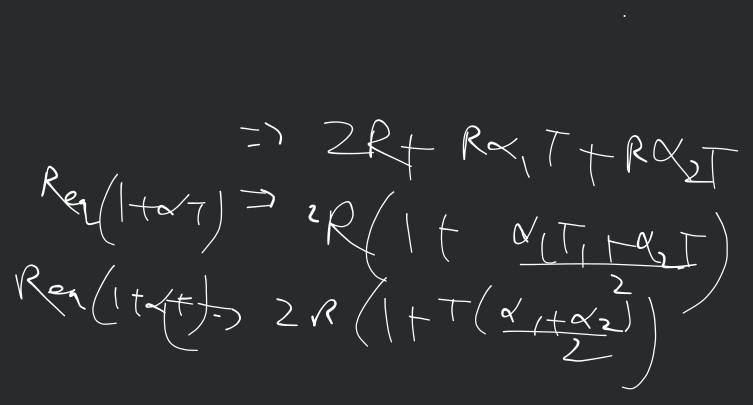 => 2R + Rα₁T + Rα₂T
Req(1+αT) => 2R(1 + (α₁T₁ + α₂T)/2)
Req(1+αt) => 2R(1 + T(α₁+α₂)/2)